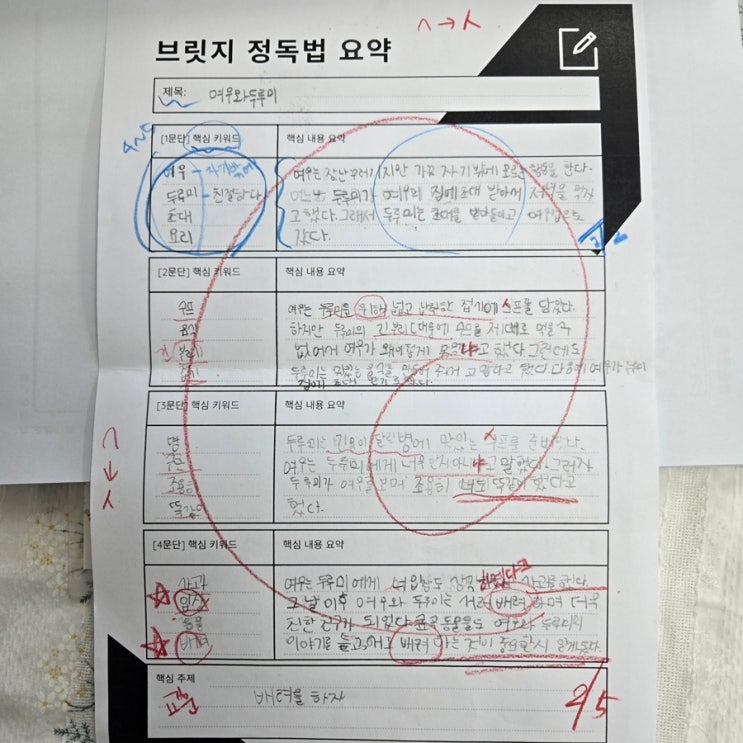 ㅅ→ㅅ
브릿지 정독법 요약
제목: 여우와두루미
[1문단] 핵심 키워드
핵심 내용 요약
4~5
여우 -
두루미 - 친절하다
초대
요리
여우는 장난꾸러기지만 가끔 자기밖에 모르는 행동을 한다.
어느날 두루미가 여우의 집에 초대 받아서 저녁을 먹자
고했다. 그래서 두루미는 초대를 받아들이고 여우집으로
갔다.
[2문단] 핵심 키워드
핵심 내용 요약
수프
음식
긴 부리
접시
여우는 두루미를 위해 넓고 납작한 접시에 스프를 담았다.
하지만 두루미의 긴 부리 때문에 수프를 제대로 먹을 수
없어서 여우가 왜이렇게 못먹냐고 했다 그런데도
두루미는 맛있는 음식을 만들어 주셔 고맙다고 했다 다음에 여우가
집에 초대
[3문단] 핵심 키워드
핵심 내용 요약
병
수프
조용히
똑같이
두루미는 기욱이 달린 병에 맛있는 스프를 준비했다.
여우는 두루미에게 너무한거 아니냐고 말했다. 그러자
두루미가 여우를 보며 조용히 너도 똑같이 했다고
했다.
[4문단] 핵심 키워드
핵심 내용 요약
사과
입장
동물
배려
여우는 두루미에게 너의 입장도 생각 했다고 사과를 한다.
그날 이후 여우와 두루미는 서로 배려하며 더욱
친한 친구가 되었다 동물들도 여우와 두루미의
이야기를 듣고 서로 배려하는 것이 중요한 것을 알게됐다.
핵심 주제
교훈
배려를 하자
2/5